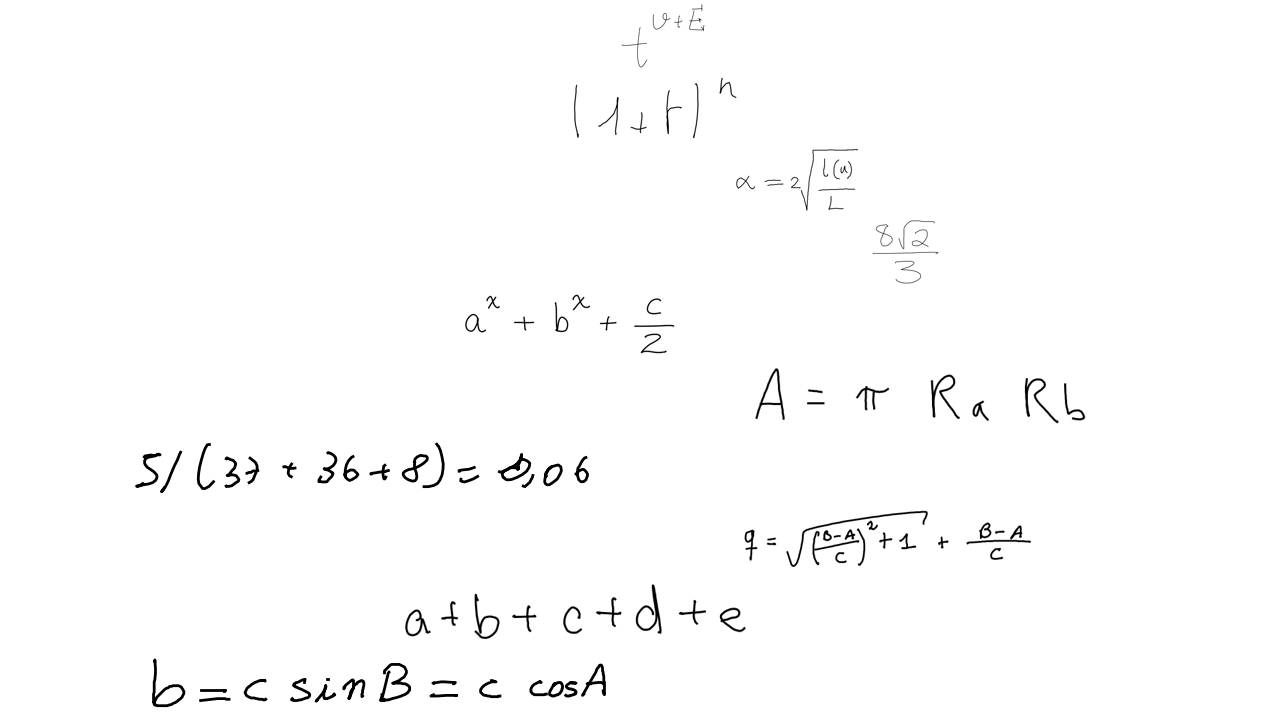 t^{v+E}
(1+r)^n
α = 2√(l(u)/L)
8√2/3
a^x + b^x + c/2
A = π R_a R_b
5/(37 + 36 + 8) = 0,06
q = √(((B-A)/C)^2 + 1) + (B-A)/C
a + b + c + d + e
b = c sin B = c cos A